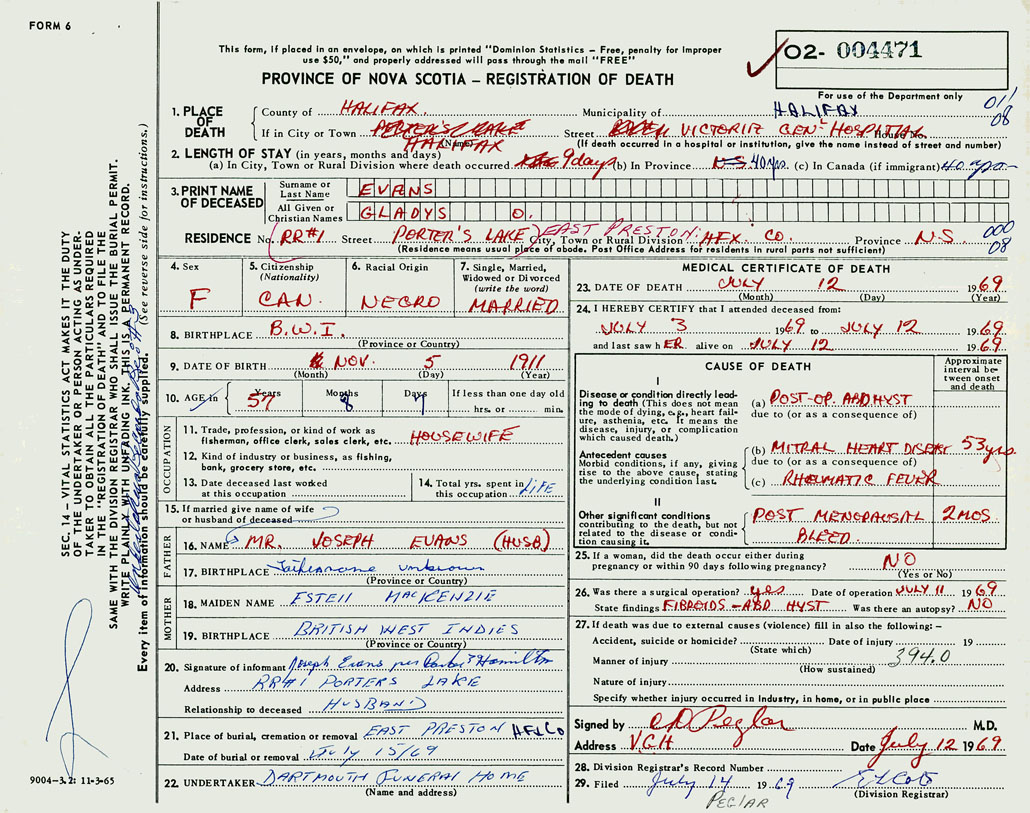 FORM 6
This form, if placed in an envelope, on which is printed "Dominion Statistics – Free, penalty for improper
use $50," and properly addressed will pass through the mail "FREE"
PROVINCE OF NOVA SCOTIA – REGISTRATION OF DEATH
O2- 004471
For use of the Department only
011
08
1. PLACE OF DEATH
County of HALIFAX. Municipality of HALIFAX
If in City or Town PORTER'S LAKE HALIFAX Street VICTORIA GEN- HOSPITAL
(Name)
(If death occurred in a hospital or institution, give the name instead of street and number)
2. LENGTH OF STAY (in years, months and days)
(a) In City, Town or Rural Division where death occurred 9 days (b) In Province N.S. 40 yrs. (c) In Canada (if immigrant) 40 yrs
3. PRINT NAME OF DECEASED
Surname or Last Name EVANS
All Given or Christian Names GLADYS O.
RESIDENCE No. RR#1 Street PORTER'S LAKE EAST PRESTON. City, Town or Rural Division HFX. CO. Province N.S. 000
08
(Residence means usual place of abode. Post Office Address for residents in rural parts not sufficient)
4. Sex F
5. Citizenship (Nationality) CAN.
6. Racial Origin NEGRO
7. Single, Married, Widowed or Divorced (write the word) MARRIED
8. BIRTHPLACE B.W.I.
(Province or Country)
9. DATE OF BIRTH NOV. 5 1911
(Month) (Day) (Year)
10. AGE in Years 57 Months 8 Days 7 If less than one day old
hrs. or min.
OCCUPATION
11. Trade, profession, or kind of work as
fisherman, office clerk, sales clerk, etc. HOUSEWIFE
12. Kind of industry or business, as fishing,
bank, grocery store, etc.
13. Date deceased last worked
at this occupation
14. Total yrs. spent in
this occupation LIFE
15. If married give name of wife
or husband of deceased
FATHER
16. NAME MR. JOSEPH EVANS (HUSB)
17. BIRTHPLACE Father name unknown
(Province or Country)
MOTHER
18. MAIDEN NAME ESTELL MACKENZIE
19. BIRTHPLACE BRITISH WEST INDIES
(Province or Country)
20. Signature of informant Joseph Evans per Hamilton
Address RR#1 PORTERS LAKE
Relationship to deceased HUSBAND
21. Place of burial, cremation or removal EAST PRESTON HFX Co
Date of burial or removal July 15/69
22. UNDERTAKER DARTMOUTH FUNERAL HOME
(Name and address)
MEDICAL CERTIFICATE OF DEATH
23. DATE OF DEATH JULY 12 1969
(Month) (Day) (Year)
24. I HEREBY CERTIFY that I attended deceased from:
JULY 3 1969 to JULY 12 1969
and last saw hER alive on JULY 12 1969
CAUSE OF DEATH
Approximate interval between onset and death
I
Disease or condition directly leading to death (This does not mean
the mode of dying, e.g., heart failure, asthenia, etc. It means the
disease, injury, or complication
which caused death.)
(a) POST-OP. ABD HYST
due to (or as a consequence of)
Antecedent causes
Morbid conditions, if any, giving
rise to the above cause, stating
the underlying condition last.
(b) MITRAL HEART DISEASE 53 yrs.
due to (or as a consequence of)
(c) RHEUMATIC FEVER
II
Other significant conditions
contributing to the death, but not
related to the disease or condition causing it.
POST MENOPAUSAL 2 MOS
BLEED.
25. If a woman, did the death occur either during
pregnancy or within 90 days following pregnancy? NO
(Yes or No)
26. Was there a surgical operation? yes Date of operation JULY 11 1969
State findings FIBROIDS - ABD HYST Was there an autopsy? NO
27. If death was due to external causes (violence) fill in also the following: –
Accident, suicide or homicide? Date of injury 19
(State which)
394.0
Manner of injury
(How sustained)
Nature of injury
Specify whether injury occurred in Industry, in home, or in public place
Signed by C D Peglar M.D.
Address V.G.H Date July 12 1969
28. Division Registrar's Record Number
29. Filed July 14 1969
(Division Registrar)
PEGLAR
SEC. 14 – VITAL STATISTICS ACT MAKES IT THE DUTY
OF THE UNDERTAKER OR PERSON ACTING AS UNDER-
TAKER TO OBTAIN ALL THE PARTICULARS REQUIRED
IN THE "REGISTRATION OF DEATH" AND TO FILE THE
SAME WITH THE DIVISION REGISTRAR WHO SHALL ISSUE THE BURIAL PERMIT.
WRITE PLAINLY WITH UNFADING INK. THIS IS A PERMANENT RECORD.
Every item of information should be carefully supplied. (See reverse side for instructions.)
9004-3.2: 11-3-65